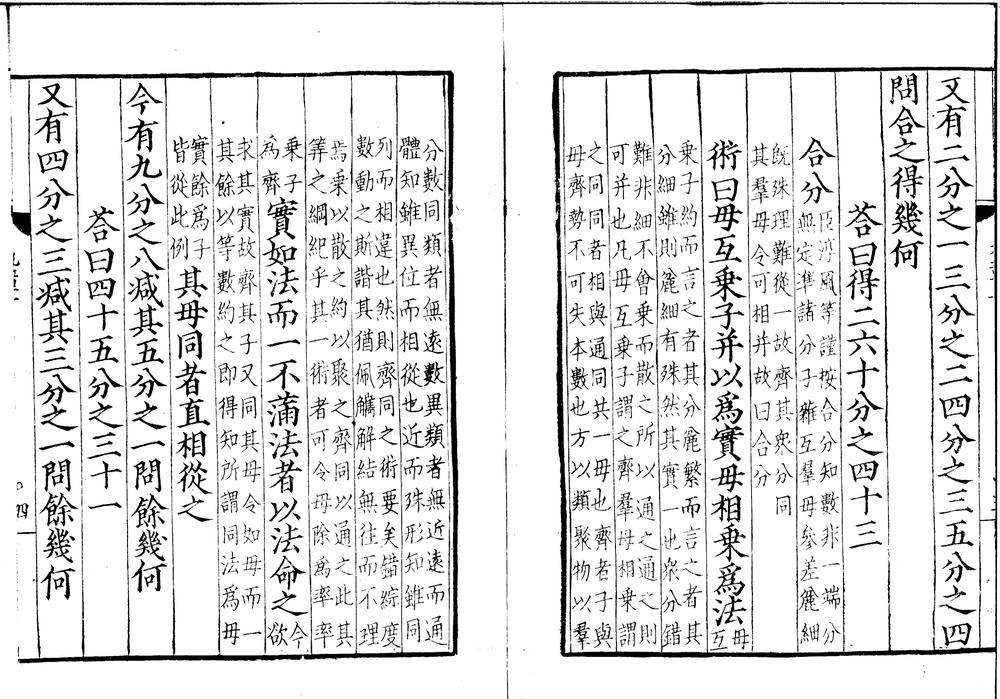 又有二分之一三分之二四分之三五分之四
問合之得幾何
荅曰得二六十分之四十三
合分
臣淳風等謹按合分知數非一端分
無定準諸分子雜互羣母參差麤細
旣殊理難從一故齊其衆分同
其羣母令可相并故曰合分
術曰母互乗子并以爲實母相乗爲法
母
互
乗子約而言之者其分麤繁而言之者其
分細雖則麤細有殊然其實一也衆分錯
難非細不會乗而散之所以通之通之則
可并也凡母互乗子謂之齊羣母相乗謂
之同同者相與通同共一母也齊者子與
母齊勢不可失本數也方以類聚物以羣
分數同類者無遠數異類者無近遠而通
體知雖異位而相從也近而殊形知雖同
列而相違也然則齊同之術要矣錯綜度
數動之斯諧其猶佩觿解結無往而不理
焉乗以散之約以聚之齊同以通之此其
筭之綱紀乎其一術者可令母除爲率率
乗子
爲齊
實如法而一不滿法者以法命之
今
欲
求其實故齊其子又同其母令如母而一
其餘以等數約之即得知所謂同法爲母
實餘爲子
皆從此例
其母同者直相從之
今有九分之八减其五分之一問餘幾何
荅曰四十五分之三十一
又有四分之三减其三分之一問餘幾何
四